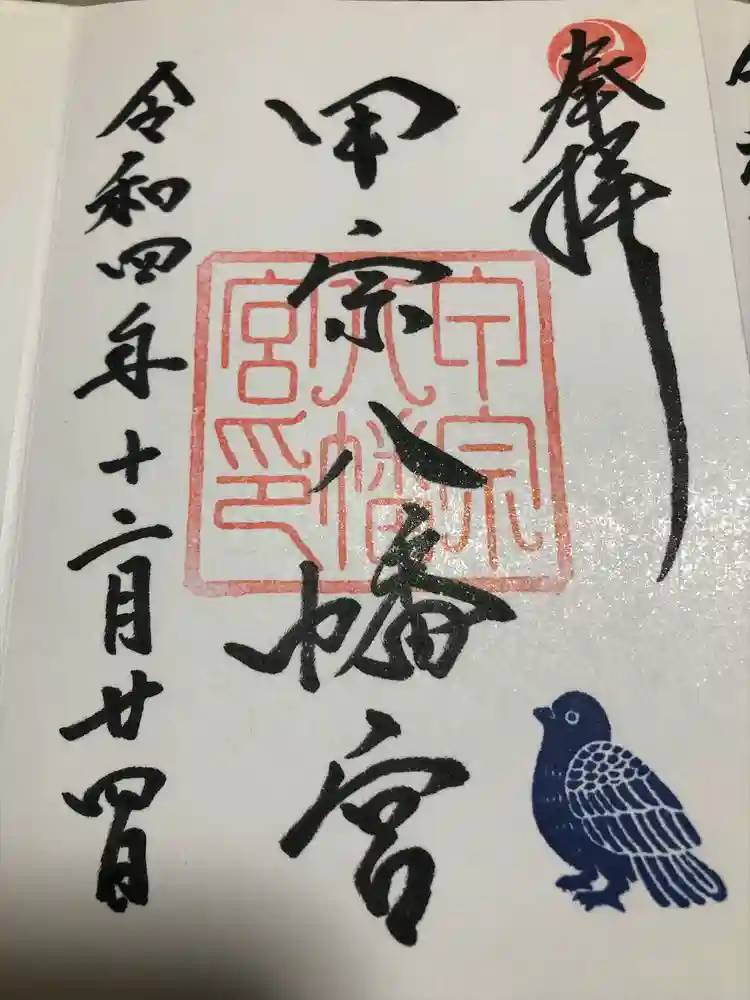 奉拝
甲宗八幡宮
甲宗
八幡
宮印
令和四年十二月廿四日